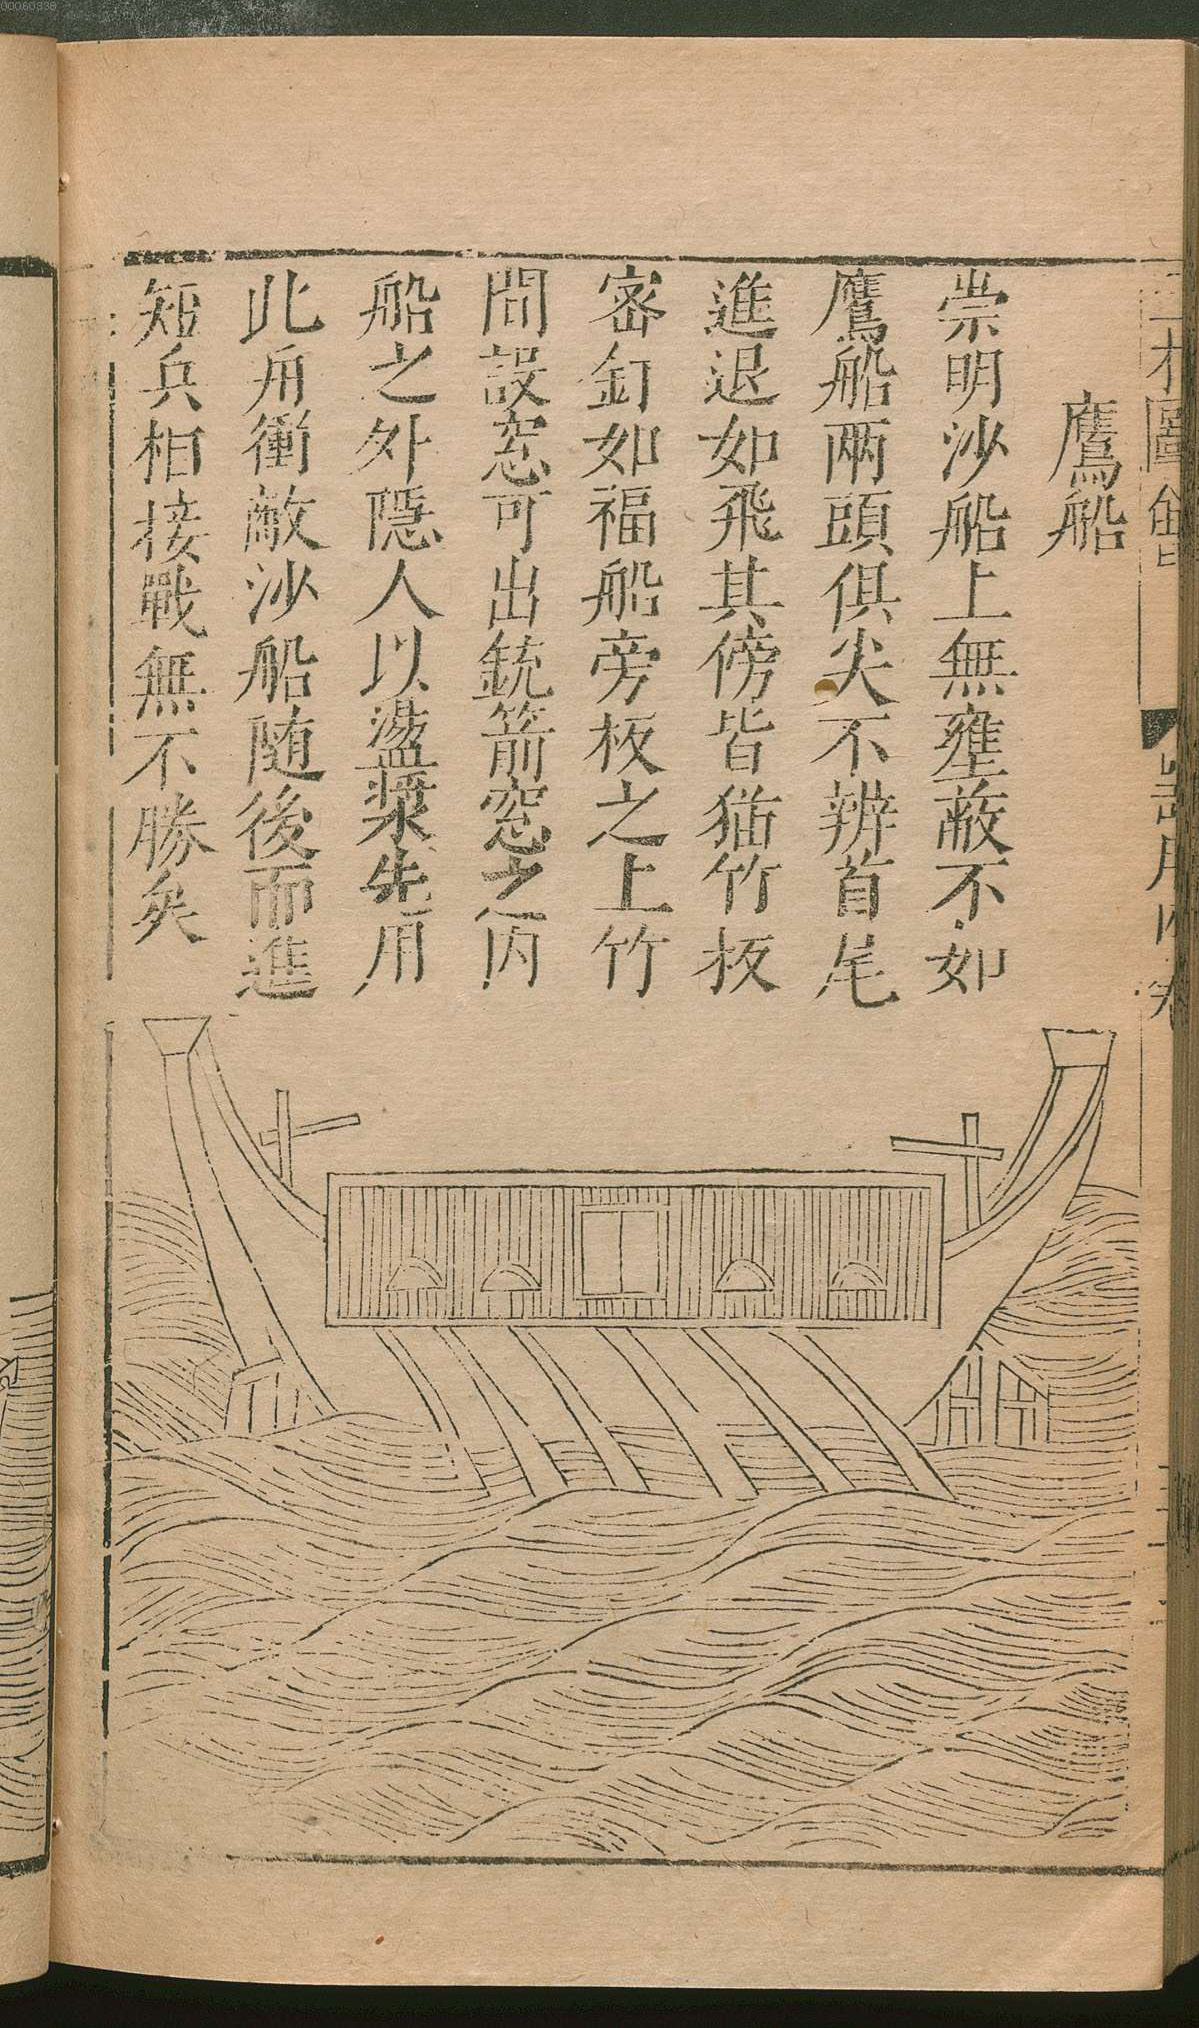 鷹船
崇明沙船上無壅蔽不如
鷹船兩頭俱尖不辨首尾
進退如飛其傍皆猫竹板
密釘如福船旁板之上竹
間設窓可出銃箭窓之内
船之外隱人以盪槳先用
此舟衝敵沙船随後而進
短兵相接戰無不勝矣
三才圖會
器用四卷
00060338